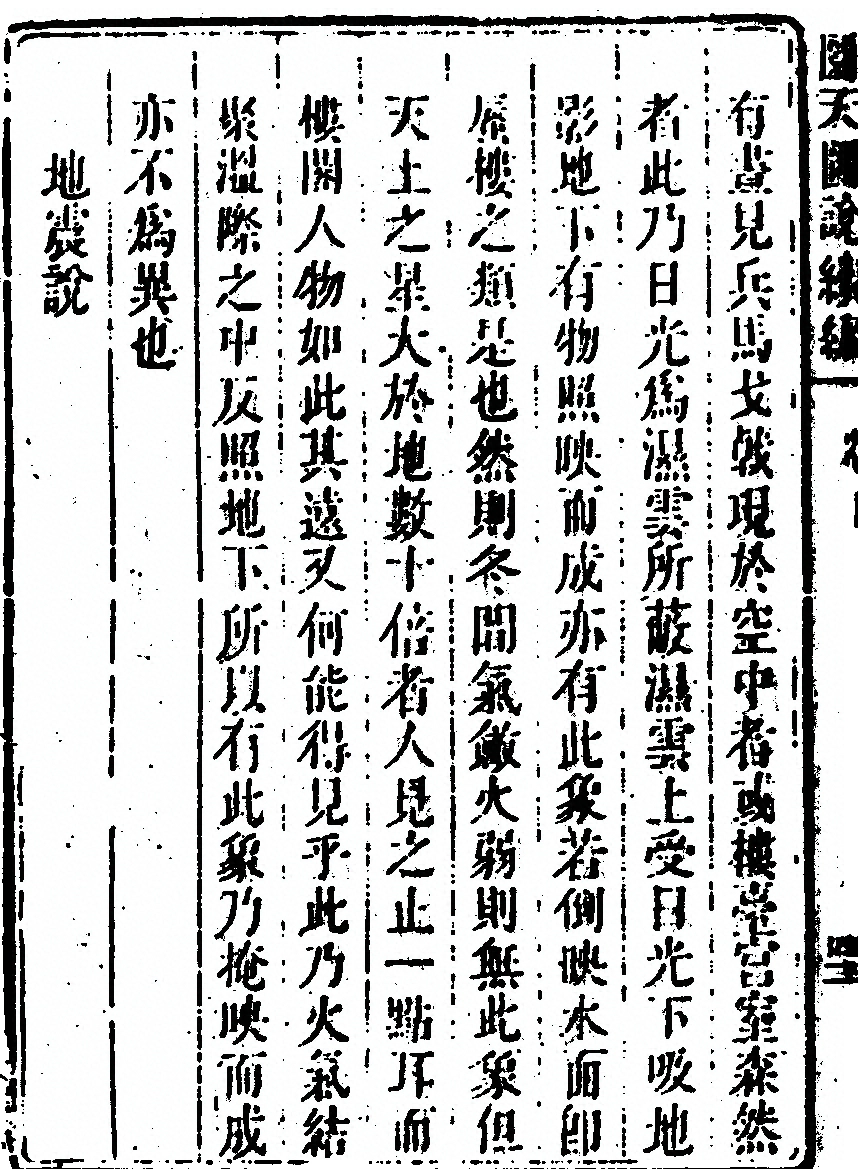 圜天圖說續編
有晝見兵馬戈戟現於空中者或樓臺宮室森然
者此乃日光爲濕雲所蔽濕雲上受日光下吸地
影地下有物照映而成亦有此象若倒映水面卽
蜃樓之類是也然則冬間氣斂火弱則無此象但
天上之星大於地數十倍者人見之止一點耳而
樓閣人物如此其遠又何能得見乎此乃火氣結
聚溫際之中反照地下所以有此象乃掩映而成
亦不爲異也
地震說